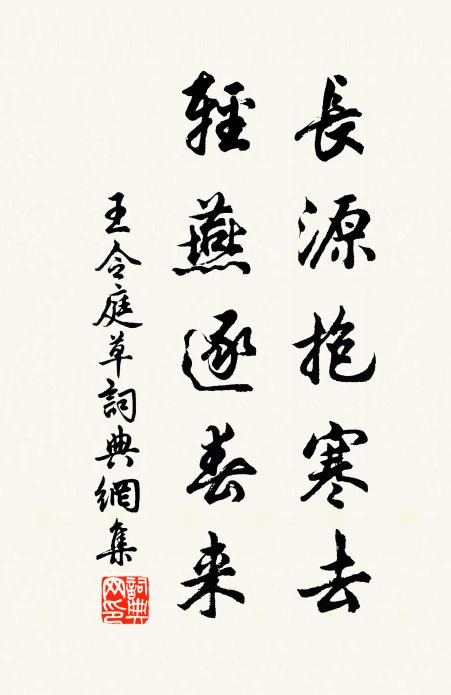 長源抱寒去
輕燕逐春来
王令庭草詞典網集
詞典
网印